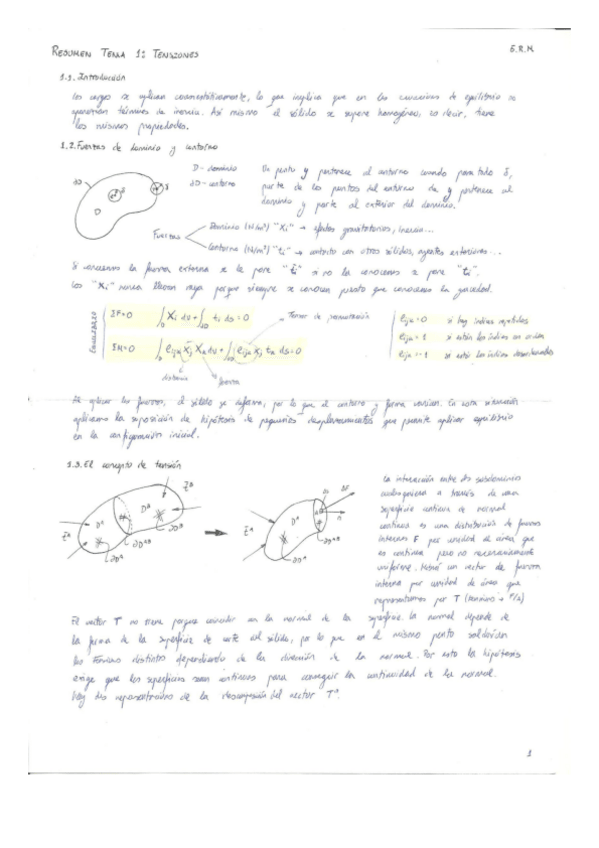 RESUMEN TEMA 1: TENSIONES
S.R.M.
1.1. Introducción
Las cargas se aplican cuasiestáticamente, lo que implica que en las ecuaciones de equilibrio no
aparecerán términos de inercia. Así mismo el sólido se supone homogéneo, es decir, tiene
las mismas propiedades.
1.2. Fuerzas de dominio y contorno
∂D
D
δ
D - dominio
∂D - contorno
Un punto y pertenece al contorno cuando para todo δ,
parte de los puntos del entorno de y pertenece al
dominio y parte al exterior del dominio.
Fuerzas
Dominio (N/m³) "Xi" → efectos gravitatorios, inercia...
Contorno (N/m²) "ti" → contacto con otros sólidos, agentes exteriores...
Si conocemos la fuerza externa se le pone "t̄i" si no la conocemos se pone "ti".
Las "Xi" nunca llevan raya porque siempre se conocen puesto que conocemos la gravedad.
EQUILIBRIO
ΣF=0 ∫D Xi dv + ∫∂D ti ds = 0
Tensor de permutación
ΣM=0 ∫D eijk xj Xk dv + ∫∂D eijk xj tk ds = 0
distancia
fuerza
eijk = 0 si hay índices repetidos
eijk = 1 si están los índices en orden
eijk = -1 si están los índices desordenados
Al aplicar las fuerzas, el sólido se deforma, por lo que el contorno y forma varían. En esta situación
aplicamos la suposición de hipótesis de pequeños desplazamientos que permite aplicar equilibrio
en la configuración inicial.
1.3. El concepto de tensión
D^A
D^B
∂D^A
∂D^B
∂D^AB
D^A
∂D^A
∂D^AB
n
La interacción entre dos subdominios
cualesquiera a través de una
superficie continua de normal
continua es una distribución de fuerzas
internas F por unidad de área que
es continua pero no necesariamente
uniforme. Habrá un vector de fuerza
interna por unidad de área que
representamos por T
El vector T no tiene porque coincidir con la normal de la superficie. La normal depende de
la forma de la superficie de corte del sólido, por lo que en el mismo punto saldrían
las tensiones distintas dependiendo de la dirección de la normal. Por esto la hipótesis
exige que las superficies sean continuas para conseguir la continuidad de la normal.
Hay dos representaciones de la descomposición del vector T
1